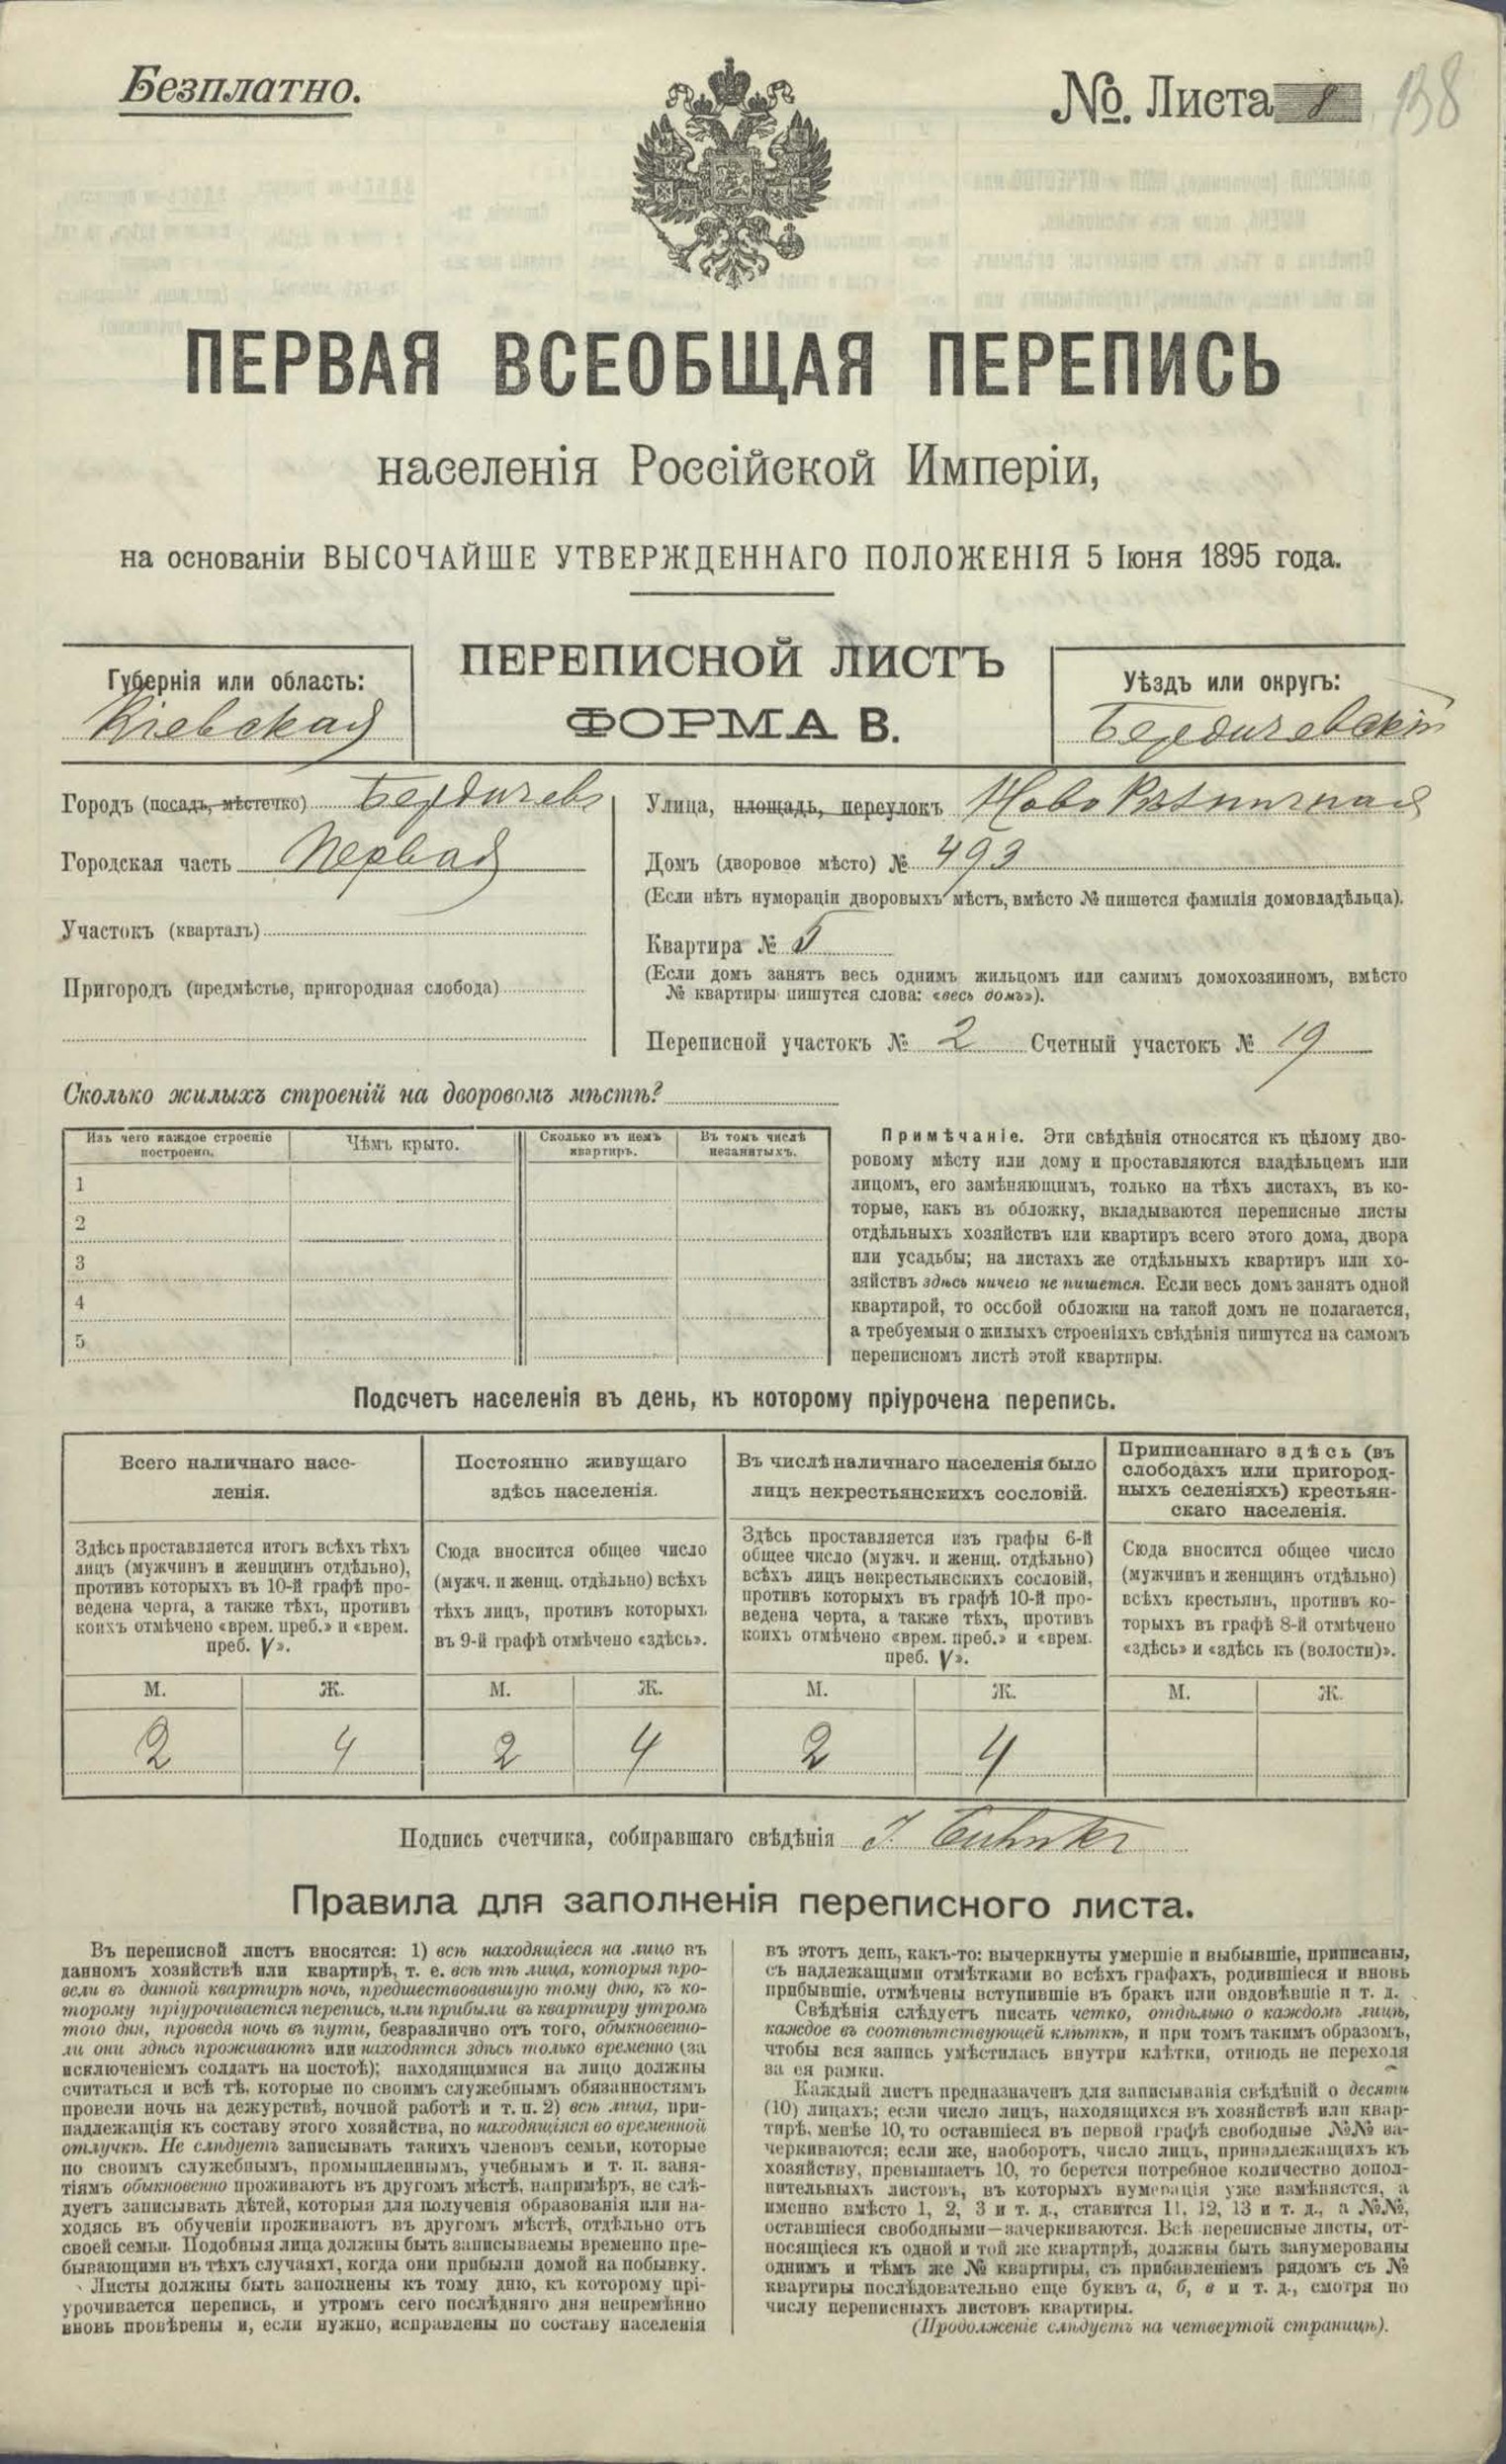 Безплатно.
№. Листа 8
138
ПЕРВАЯ ВСЕОБЩАЯ ПЕРЕПИСЬ
населенія Россійской Имперіи,
на основаніи ВЫСОЧАЙШЕ УТВЕРЖДЕННАГО ПОЛОЖЕНІЯ 5 Іюня 1895 года.
ПЕРЕПИСНОЙ ЛИСТЪ
ФОРМА В.
Губернія или область:
Кіевская
Уѣздъ или округъ:
Бердичевскій
Городъ (посадъ, мѣстечко) Бердичевъ
Городская часть Первая
Участокъ (кварталъ)
Пригородъ (предмѣстье, пригородная слобода)
Улица, площадь, переулокъ Ново
Домъ (дворовое мѣсто) № 493
(Если нѣтъ нумораціи дворовыхъ мѣстъ, вмѣсто № пишется фамилія домовладѣльца).
Квартира № 5
(Если домъ занятъ весь однимъ жильцомъ или самимъ домохозяиномъ, вмѣсто
№ квартиры пишутся слова: «весь домъ»).
Переписной участокъ № 2 Счетный участокъ № 19
Сколько жилыхъ строеній на дворовомъ мѣстѣ?
Изъ чего каждое строеніе построено.
Чѣмъ крыто.
Сколько въ немъ квартиръ.
Въ томъ числѣ незанятыхъ.
1
2
3
4
5
Примѣчаніе. Эти свѣдѣнія относятся къ цѣлому дво-
ровому мѣсту или дому и проставляются владѣльцемъ или
лицомъ, его замѣняющимъ, только на тѣхъ листахъ, въ ко-
торые, какъ въ обложку, вкладываются переписные листы
отдѣльныхъ хозяйствъ или квартиръ всего этого дома, двора
или усадьбы; на листахъ же отдѣльныхъ квартиръ или хо-
зяйствъ здѣсь ничего не пишется. Если весь домъ занятъ одной
квартирой, то особой обложки на такой домъ не полагается,
а требуемыя о жилыхъ строеніяхъ свѣдѣнія пишутся на самомъ
переписномъ листѣ этой квартиры.
Подсчетъ населенія въ день, къ которому пріурочена перепись.
Всего наличнаго насе-
ленія.
Здѣсь проставляется итогъ всѣхъ тѣхъ
лицъ (мужчинъ и женщинъ отдѣльно),
противъ которыхъ въ 10-й графѣ про-
ведена черта, а также тѣхъ, противъ
коихъ отмѣчено «врем. преб.» и «врем.
преб. V».
Постоянно живущаго
здѣсь населенія.
Сюда вносится общее число
(мужч. и женщ. отдѣльно) всѣхъ
тѣхъ лицъ, противъ которыхъ
въ 9-й графѣ отмѣчено «здѣсь».
Въ числѣ наличнаго населенія было
лицъ некрестьянскихъ сословій.
Здѣсь проставляется изъ графы 6-й
общее число (мужч. и женщ. отдѣльно)
всѣхъ лицъ некрестьянскихъ сословій,
противъ которыхъ въ графѣ 10-й про-
ведена черта, а также тѣхъ, противъ
коихъ отмѣчено «врем. преб.» и «врем.
преб. V».
Приписаннаго здѣсь (въ
слободахъ или пригород-
ныхъ селеніяхъ) крестьян-
скаго населенія.
Сюда вносится общее число
(мужчинъ и женщинъ отдѣльно)
всѣхъ крестьянъ, противъ ко-
торыхъ въ графѣ 8-й отмѣчено
«здѣсь» и «здѣсь къ (волости)».
М. Ж. М. Ж. М. Ж. М. Ж.
2 4 2 4 2 4
Подпись счетчика, собиравшаго свѣдѣнія
Правила для заполненія переписного листа.
Въ переписной листъ вносятся: 1) всѣ находящіеся на лицо въ
данномъ хозяйствѣ или квартирѣ, т. е. всѣ тѣ лица, которыя про-
вели въ данной квартирѣ ночь, предшествовавшую тому дню, къ ко-
торому пріурочивается перепись, или прибыли въ квартиру утромъ
того дня, проведя ночь въ пути, безразлично отъ того, обыкновенно-
ли они здѣсь проживаютъ или находятся здѣсь только временно (за
исключеніемъ солдатъ на постоѣ); находящимися на лицо должны
считаться и всѣ тѣ, которые по своимъ служебнымъ обязанностямъ
провели ночь на дежурствѣ, ночной работѣ и т. п. 2) всѣ лица, при-
надлежащія къ составу этого хозяйства, но находящіяся во временной
отлучкѣ. Не слѣдуетъ записывать такихъ членовъ семьи, которые
по своимъ служебнымъ, промышленнымъ, учебнымъ и т. п. заня-
тіямъ обыкновенно проживаютъ въ другомъ мѣстѣ, напримѣръ, не слѣ-
дуетъ записывать дѣтей, которыя для полученія образованія или на-
ходясь въ обученіи проживаютъ въ другомъ мѣстѣ, отдѣльно отъ
своей семьи. Подобныя лица должны быть записываемы временно пре-
бывающими въ тѣхъ случаяхъ, когда они прибыли домой на побывку.
Листы должны быть заполнены къ тому дню, къ которому прі-
урочивается перепись, и утромъ сего послѣдняго дня непремѣнно
вновь провѣрены и, если нужно, исправлены по составу населенія
въ этотъ день, какъ-то: вычеркнуты умершіе и выбывшіе, приписаны,
съ надлежащими отмѣтками во всѣхъ графахъ, родившіеся и вновь
прибывшіе, отмѣчены вступившіе въ бракъ или овдовѣвшіе и т. д.
Свѣдѣнія слѣдуетъ писать четко, отдѣльно о каждомъ лицѣ,
каждое въ соотвѣтствующей клѣткѣ, и при томъ такимъ образомъ,
чтобы вся запись умѣстилась внутри клѣтки, отнюдь не переходя
за ея рамки.
Каждый листъ предназначенъ для записыванія свѣдѣній о десяти
(10) лицахъ; если число лицъ, находящихся въ хозяйствѣ или квар-
тирѣ, менѣе 10, то оставшіеся въ первой графѣ свободные №№ за-
черкиваются; если же, наоборотъ, число лицъ, принадлежащихъ къ
хозяйству, превышаетъ 10, то берется потребное количество допол-
нительныхъ листовъ, въ которыхъ нумерація уже измѣняется, а
именно вмѣсто 1, 2, 3 и т. д., ставится 11, 12, 13 и т. д., а №№,
оставшіеся свободными—зачеркиваются. Всѣ переписные листы, от-
носящіеся къ одной и той же квартирѣ, должны быть занумерованы
однимъ и тѣмъ же № квартиры, съ прибавленіемъ рядомъ съ №
квартиры послѣдовательно еще буквъ а, б, в и т. д., смотря по
числу переписныхъ листовъ квартиры.
(Продолженіе слѣдуетъ на четвертой страницѣ).